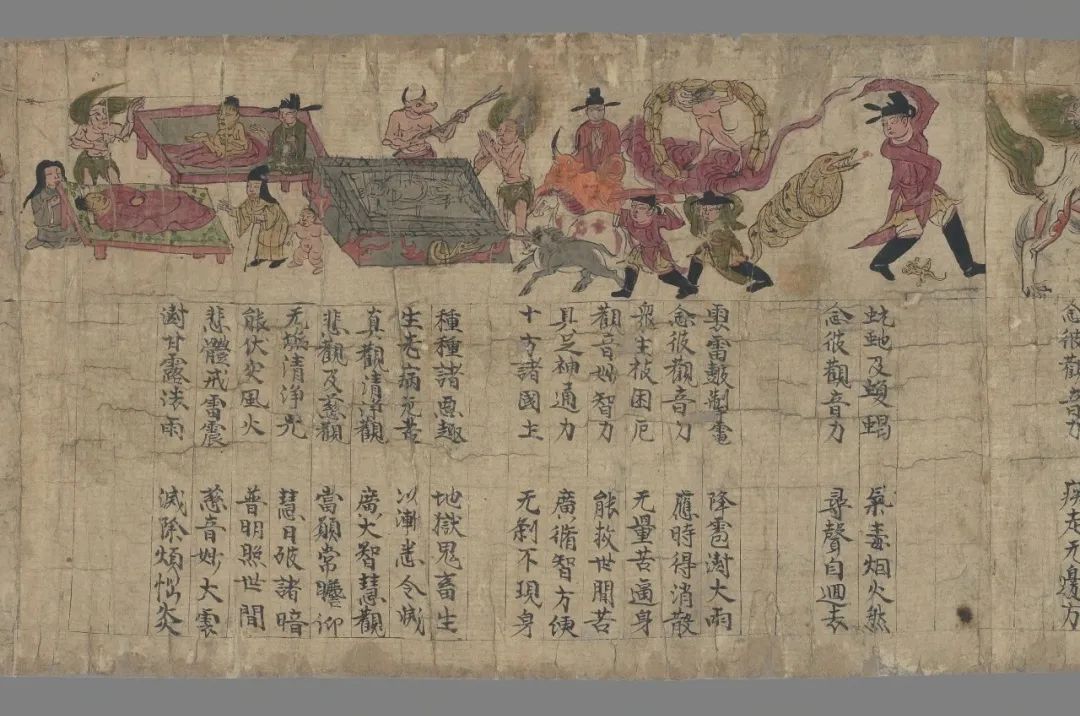 念彼觀音力 疾走无邊方
蚖虵及蝮蝎 氣毒烟火然
念彼觀音力 尋聲自迴去
雲雷鼓掣電 降雹澍大雨
念彼觀音力 應時得消散
衆生被困厄 无量苦逼身
觀音妙智力 能救世間苦
具足神通力 廣脩智方便
十方諸國土 无刹不現身
種種諸惡趣 地獄鬼畜生
生老病死苦 以漸悉令滅
真觀清淨觀 廣大智慧觀
悲觀及慈觀 當願常瞻仰
无垢清淨光 慧日破諸暗
能伏灾風火 普明照世間
悲體戒雷震 慈音妙大雲
澍甘露法雨 滅除煩惱炎